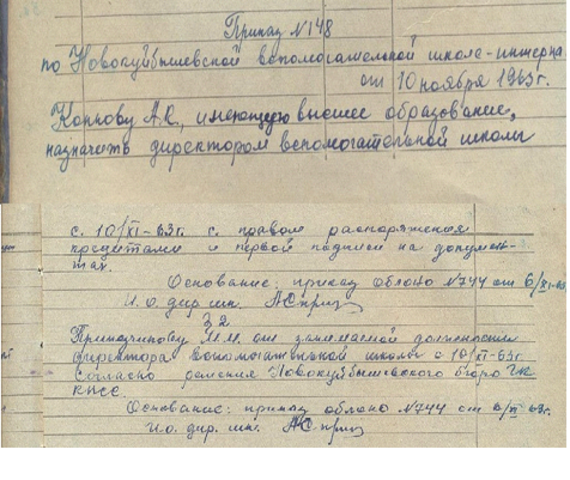 Приказ №148
по Новокуйбышевской вспомогательной школе-интерна
от 10 ноября 1963г.
Коннову А.К., имеющую высшее образование,
назначить директором вспомогательной школы
с 10/XI-63г. с правом распоряжения
кредитами и первой подписи на докумен-
тах.
Основание: приказ облоно №744 от 6/XI-63
И.о. дир. шк.
§ 2
М.И. от занимаемой должности
директора вспомогательной школы с 10/XI-63г.
согласно решения Новокуйбышевского бюро ГК
КПСС.
Основание: приказ облоно №744 от 6/XI 63г.
И.о. дир. шк.